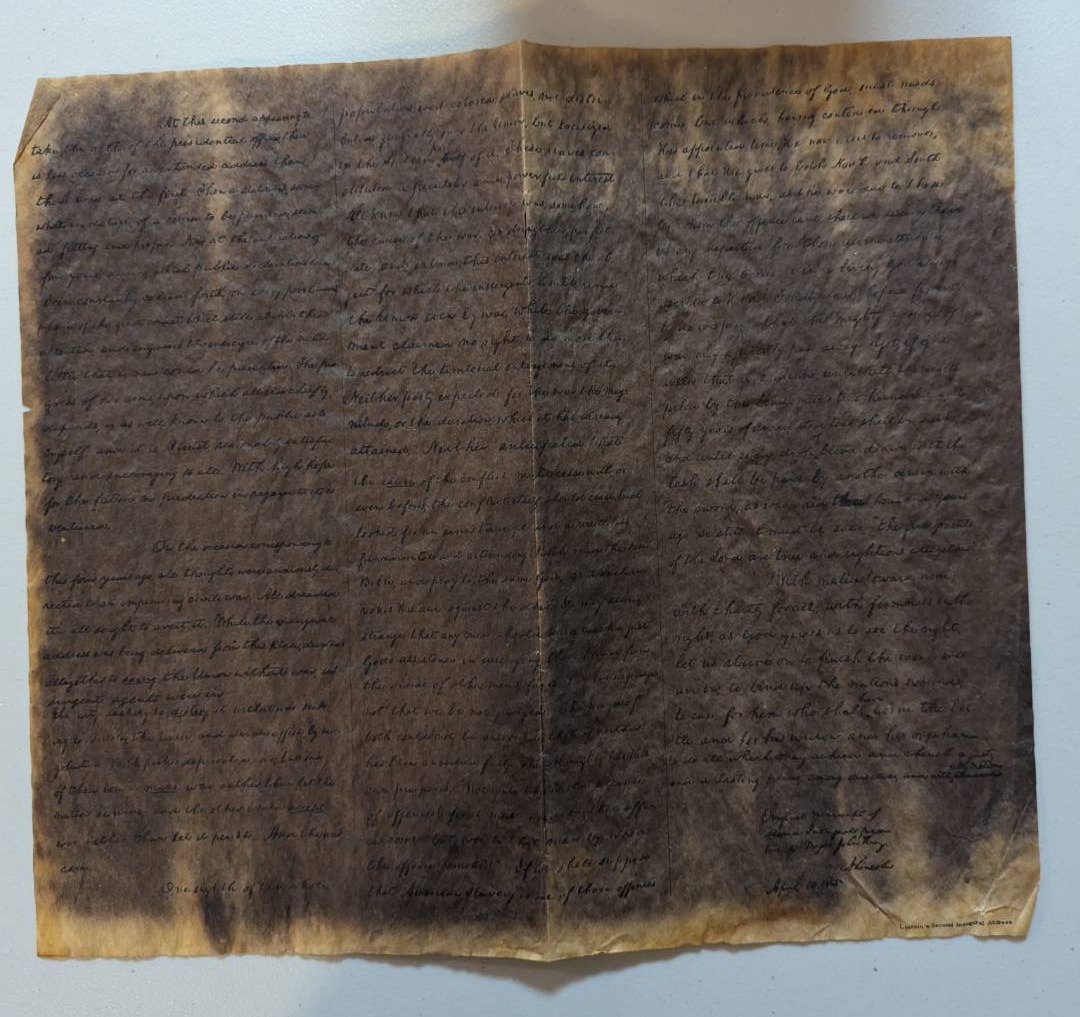 At this second appearing to
take the oath of the presidential office, there
is less occasion for an extended address than
there was at the first. Then a statement, some
what in detail, of a course to be pursued, seem
ed fitting and proper. Now, at the expiration of
four years, during which public declarations
have been constantly called forth on every point and
phase of the great contest which still absorbs the
attention, and engrosses the energies of the nation
little that is new could be presented. The pro
gress of our arms, upon which all else chiefly
depends, is as well known to the public as to
myself; and it is, I trust, reasonably satisfac
tory and encouraging to all. With high hope
for the future, no prediction in regard to it is
ventured.
On the occasion corresponding to
this four years ago, all thoughts were anxiously di
rected to an impending civil war. All dreaded
it— all sought to avert it. While the inaugural
address was being delivered from this place, devoted
altogether to saving the Union without war, in
surgent agents were in
the city seeking to destroy it without war— seek
ing to dissolve the Union, and divide effects, by ne
gotiation. Both parties deprecated war; but one
of them would make war rather than let the
nation survive; and the other would accept
war rather than let it perish. And the war
came.
One eighth of the whole
population were colored slaves, not distri
buted generally over the Union, but localized
in the Southern part of it. These slaves con
stituted a peculiar and powerful interest.
All knew that this interest was, somehow,
the cause of the war. To strengthen, perpet
uate, and extend this interest was the ob
ject for which the insurgents would rend
the Union, even by war; while the govern
ment claimed no right to do more than
to restrict the territorial enlargement of it.
Neither party expected for the war, the mag
nitude, or the duration, which it has already
attained. Neither anticipated that
the cause of the conflict might cease with, or
even before, the conflict itself should cease. Each
looked for an easier triumph, and a result less
fundamental and astounding. Both read the same
Bible, and pray to the same God; and each in
vokes His aid against the other. It may seem
strange that any men should dare to ask a just
God's assistance in wringing their bread from
the sweat of other men's faces; but let us judge
not that we be not judged. The prayers of
both could not be answered; that of neither
has been answered fully. The Almighty has his
own purposes. "Woe unto the world because
of offences! for it must needs be that offen
ces come; but woe to that man by whom
the offence cometh!" If we shall suppose
that American Slavery is one of those offences
which, in the providence of God, must needs
come, but which, having continued through
His appointed time, He now wills to remove,
and that He gives to both North and South
this terrible war, as the woe due to those
by whom the offence came, shall we discern there
in any departure from those divine attributes
which the believers in a living God always
ascribe to Him? Fondly do we hope— fervently
do we pray— that this mighty scourge of
war may speedily pass away. Yet, if God
wills that it continue, until all the wealth
piled by the bond-man's two hundred and
fifty years of unrequited toil shall be sunk,
and until every drop of blood drawn with the
lash, shall be paid by another drawn with
the sword, as was said three thousand years
ago, so still it must be said "the judgments
of the Lord, are true and righteous altogether"
With malice toward none;
with charity for all; with firmness in the
right, as God gives us to see the right,
let us strive on to finish the work we
are in; to bind up the nation's wounds;
to care for him who shall have borne the bat
tle, and for his widow, and his orphan—
to do all which may achieve and cherish a just,
and a lasting peace, among ourselves, and with all nations
Original manuscript of
second Inaugural presen
ted to Major John Hay
A. Lincoln
April 10, 1865
Lincoln's Second Inaugural Address